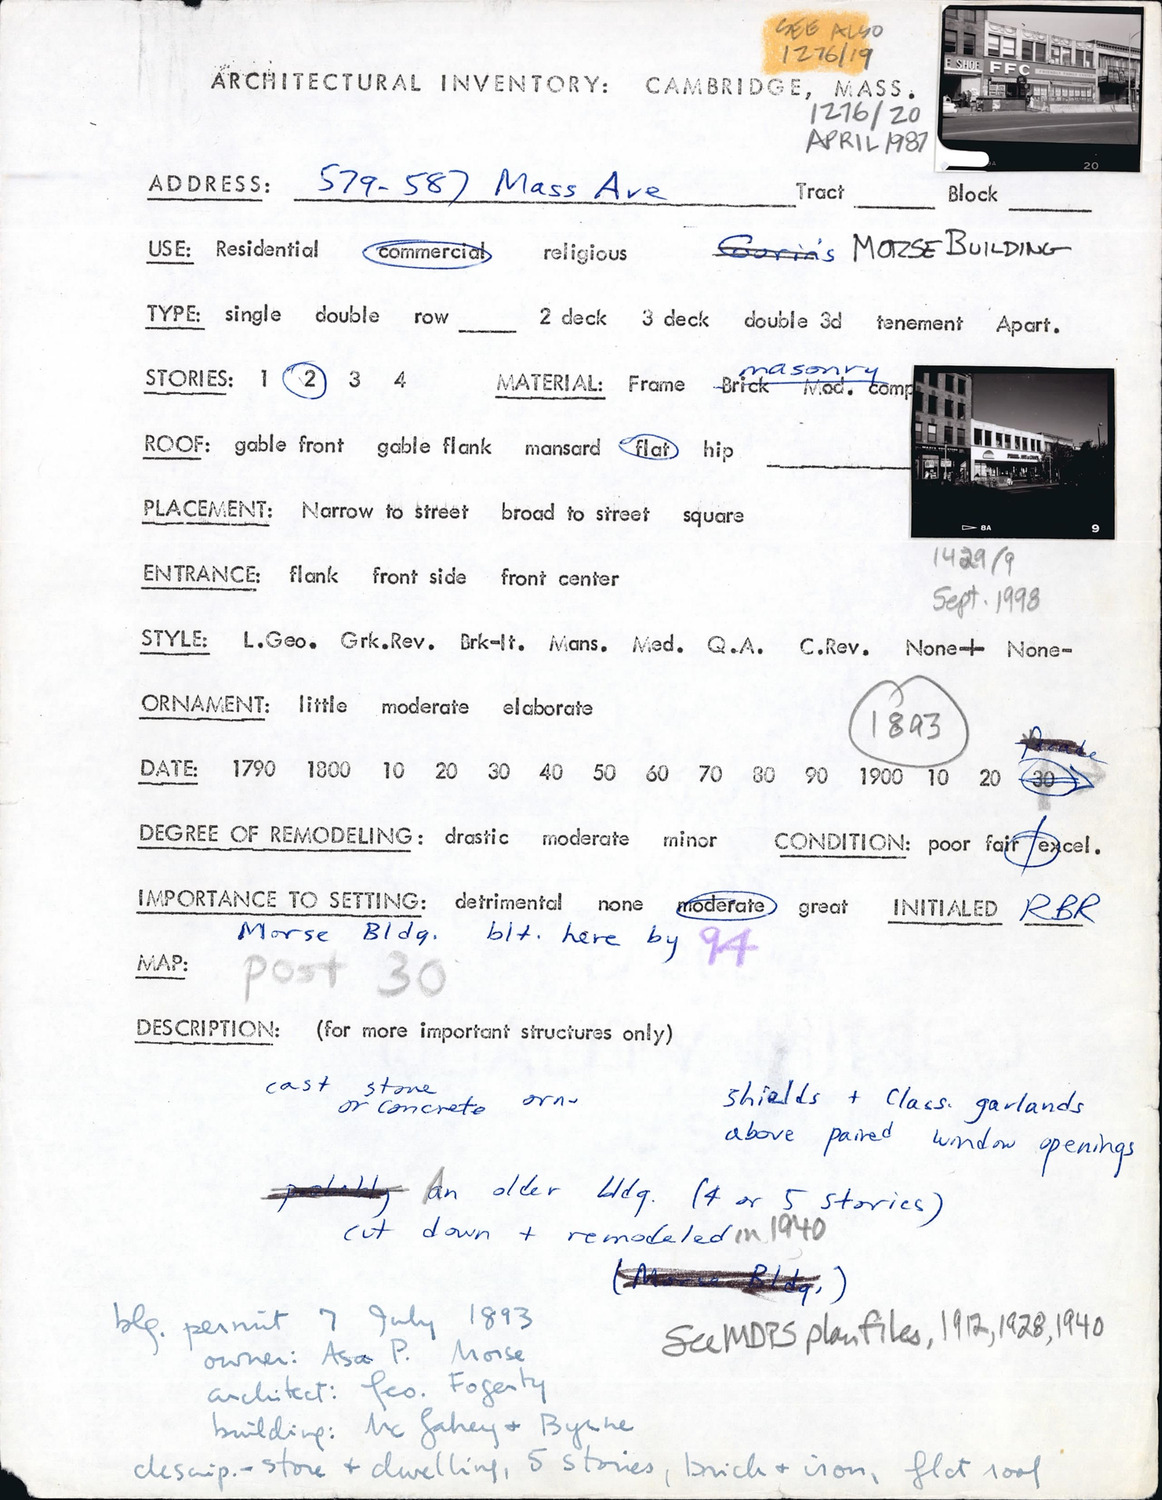 SEE ALSO
1276/19
ARCHITECTURAL INVENTORY: CAMBRIDGE, MASS.
1276/20
APRIL 1987
E SHOE FFC
20
ADDRESS: 579-587 Mass Ave Tract Block
USE: Residential commercial religious Gorin's MORSE BUILDING
TYPE: single double row 2 deck 3 deck double 3d tenement Apart.
masonry
STORIES: 1 2 3 4 MATERIAL: Frame Brick Mod. comp
ROOF: gable front gable flank mansard flat hip
PLACEMENT: Narrow to street broad to street square
8A 9
1429/9
Sept. 1998
ENTRANCE: flank front side front center
STYLE: L.Geo. Grk.Rev. Brk-It. Mans. Med. Q.A. C.Rev. None+ None-
ORNAMENT: little moderate elaborate
1893
DATE: 1790 1800 10 20 30 40 50 60 70 80 90 1900 10 20 30
DEGREE OF REMODELING: drastic moderate minor CONDITION: poor fair excel.
IMPORTANCE TO SETTING: detrimental none moderate great INITIALED RBR
Morse Bldg. blt. here by 94
MAP: post 30
DESCRIPTION: (for more important structures only)
cast stone or concrete orn-
shields + Class. garlands
above paired window openings
probably An older bldg. (4 or 5 stories)
cut down + remodeled in 1940
(Morse Bldg.)
blg. permit 7 July 1893
See MDPS plan files, 1912, 1928, 1940
owner: Asa P. Morse
architect: Geo. Fogerty
building: McGahey + Byrne
descrip.- store + dwelling, 5 stories, brick + iron, flat roof